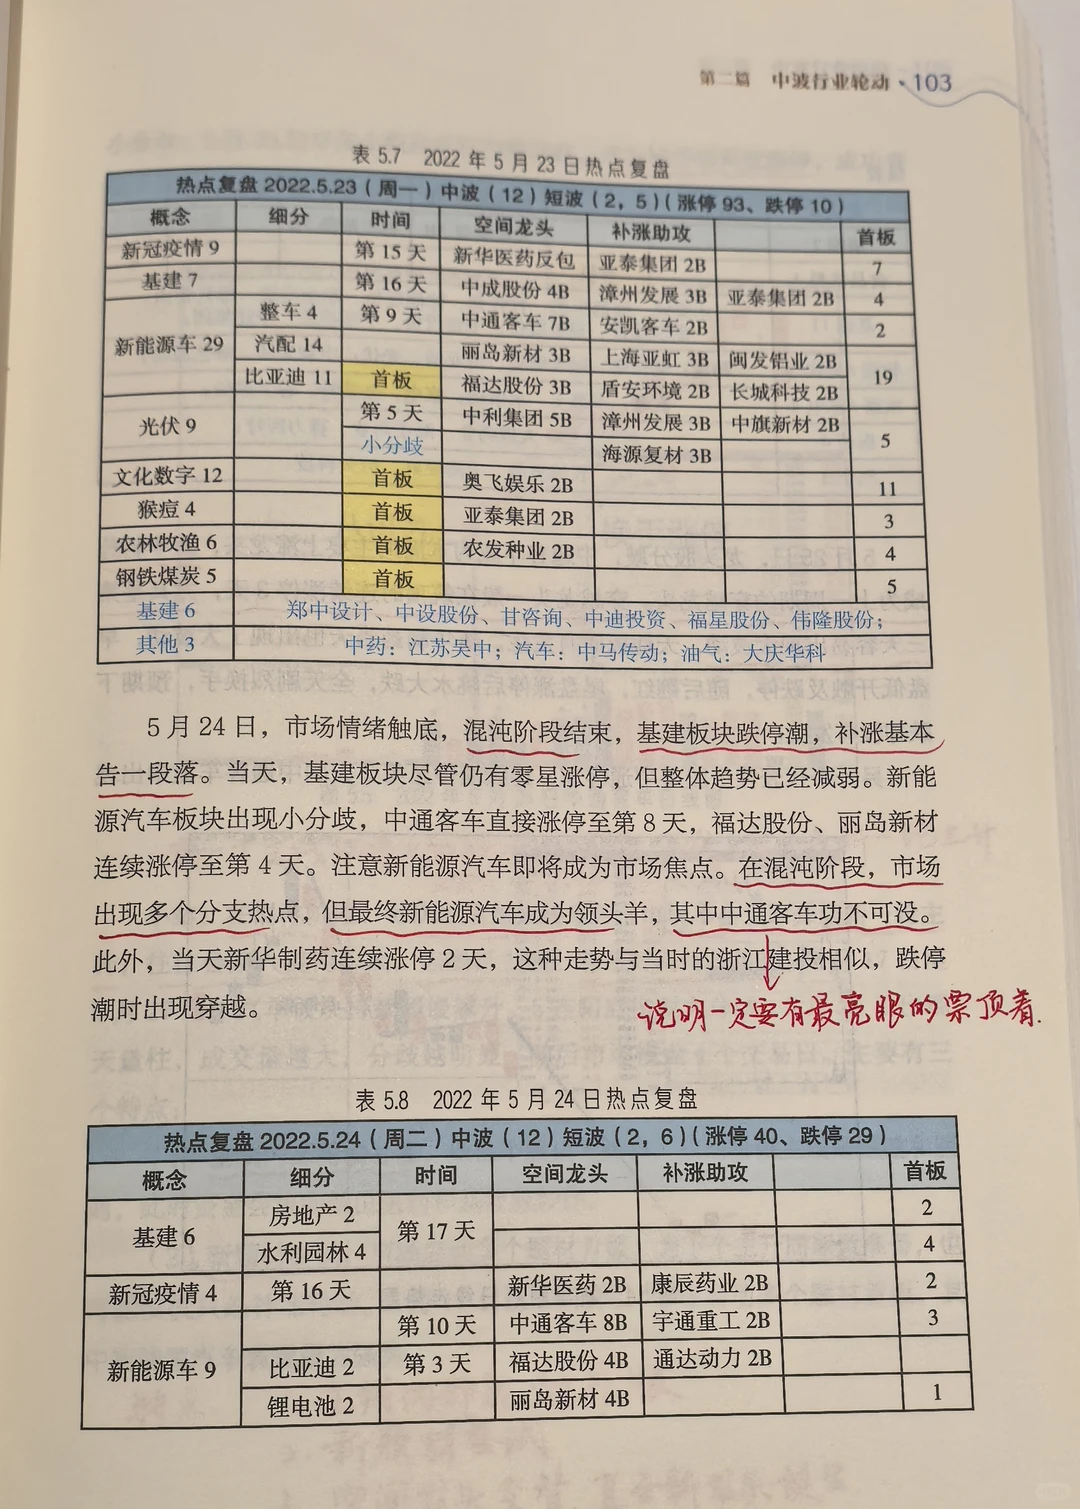 第二篇 中波行业轮动·103
表 5.7 2022 年 5 月 23 日热点复盘
热点复盘 2022.5.23（周一）中波（12）短波（2，5）（涨停 93、跌停 10）
概念 细分 时间 空间龙头 补涨助攻 首板
新冠疫情 9 第 15 天 新华医药反包 亚泰集团 2B 7
基建 7 第 16 天 中成股份 4B 漳州发展 3B 亚泰集团 2B 4
新能源车 29 整车 4 第 9 天 中通客车 7B 安凯客车 2B 2
汽配 14 丽岛新材 3B 上海亚虹 3B 闽发铝业 2B 19
比亚迪 11 首板 福达股份 3B 盾安环境 2B 长城科技 2B
光伏 9 第 5 天 中利集团 5B 漳州发展 3B 中旗新材 2B 5
小分歧 海源复材 3B
文化数字 12 首板 奥飞娱乐 2B 11
猴痘 4 首板 亚泰集团 2B 3
农林牧渔 6 首板 农发种业 2B 4
钢铁煤炭 5 首板 5
基建 6 郑中设计、中设股份、甘咨询、中迪投资、福星股份、伟隆股份；
其他 3 中药：江苏吴中；汽车：中马传动；油气：大庆华科
5 月 24 日，市场情绪触底，混沌阶段结束，基建板块跌停潮，补涨基本
告一段落。当天，基建板块尽管仍有零星涨停，但整体趋势已经减弱。新能
源汽车板块出现小分歧，中通客车直接涨停至第 8 天，福达股份、丽岛新材
连续涨停至第 4 天。注意新能源汽车即将成为市场焦点。在混沌阶段，市场
出现多个分支热点，但最终新能源汽车成为领头羊，其中中通客车功不可没。
此外，当天新华制药连续涨停 2 天，这种走势与当时的浙江建投相似，跌停
潮时出现穿越。
说明一定要有最亮眼的票顶着.
表 5.8 2022 年 5 月 24 日热点复盘
热点复盘 2022.5.24（周二）中波（12）短波（2，6）（涨停 40、跌停 29）
概念 细分 时间 空间龙头 补涨助攻 首板
基建 6 房地产 2 第 17 天 2
水利园林 4 4
新冠疫情 4 第 16 天 新华医药 2B 康辰药业 2B 2
新能源车 9 第 10 天 中通客车 8B 宇通重工 2B 3
比亚迪 2 第 3 天 福达股份 4B 通达动力 2B
锂电池 2 丽岛新材 4B 1